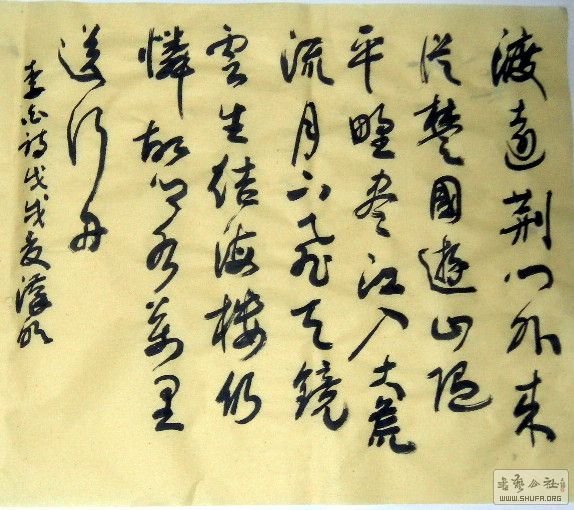 渡遠荆門外来
從楚國遊山随
平野尽江入大荒
流月下飛天鏡
雲生結海樓仍
憐故鄉水萬里
送行舟
李白詩戊戌夏
书艺公社
WWW.SHUFA.ORG